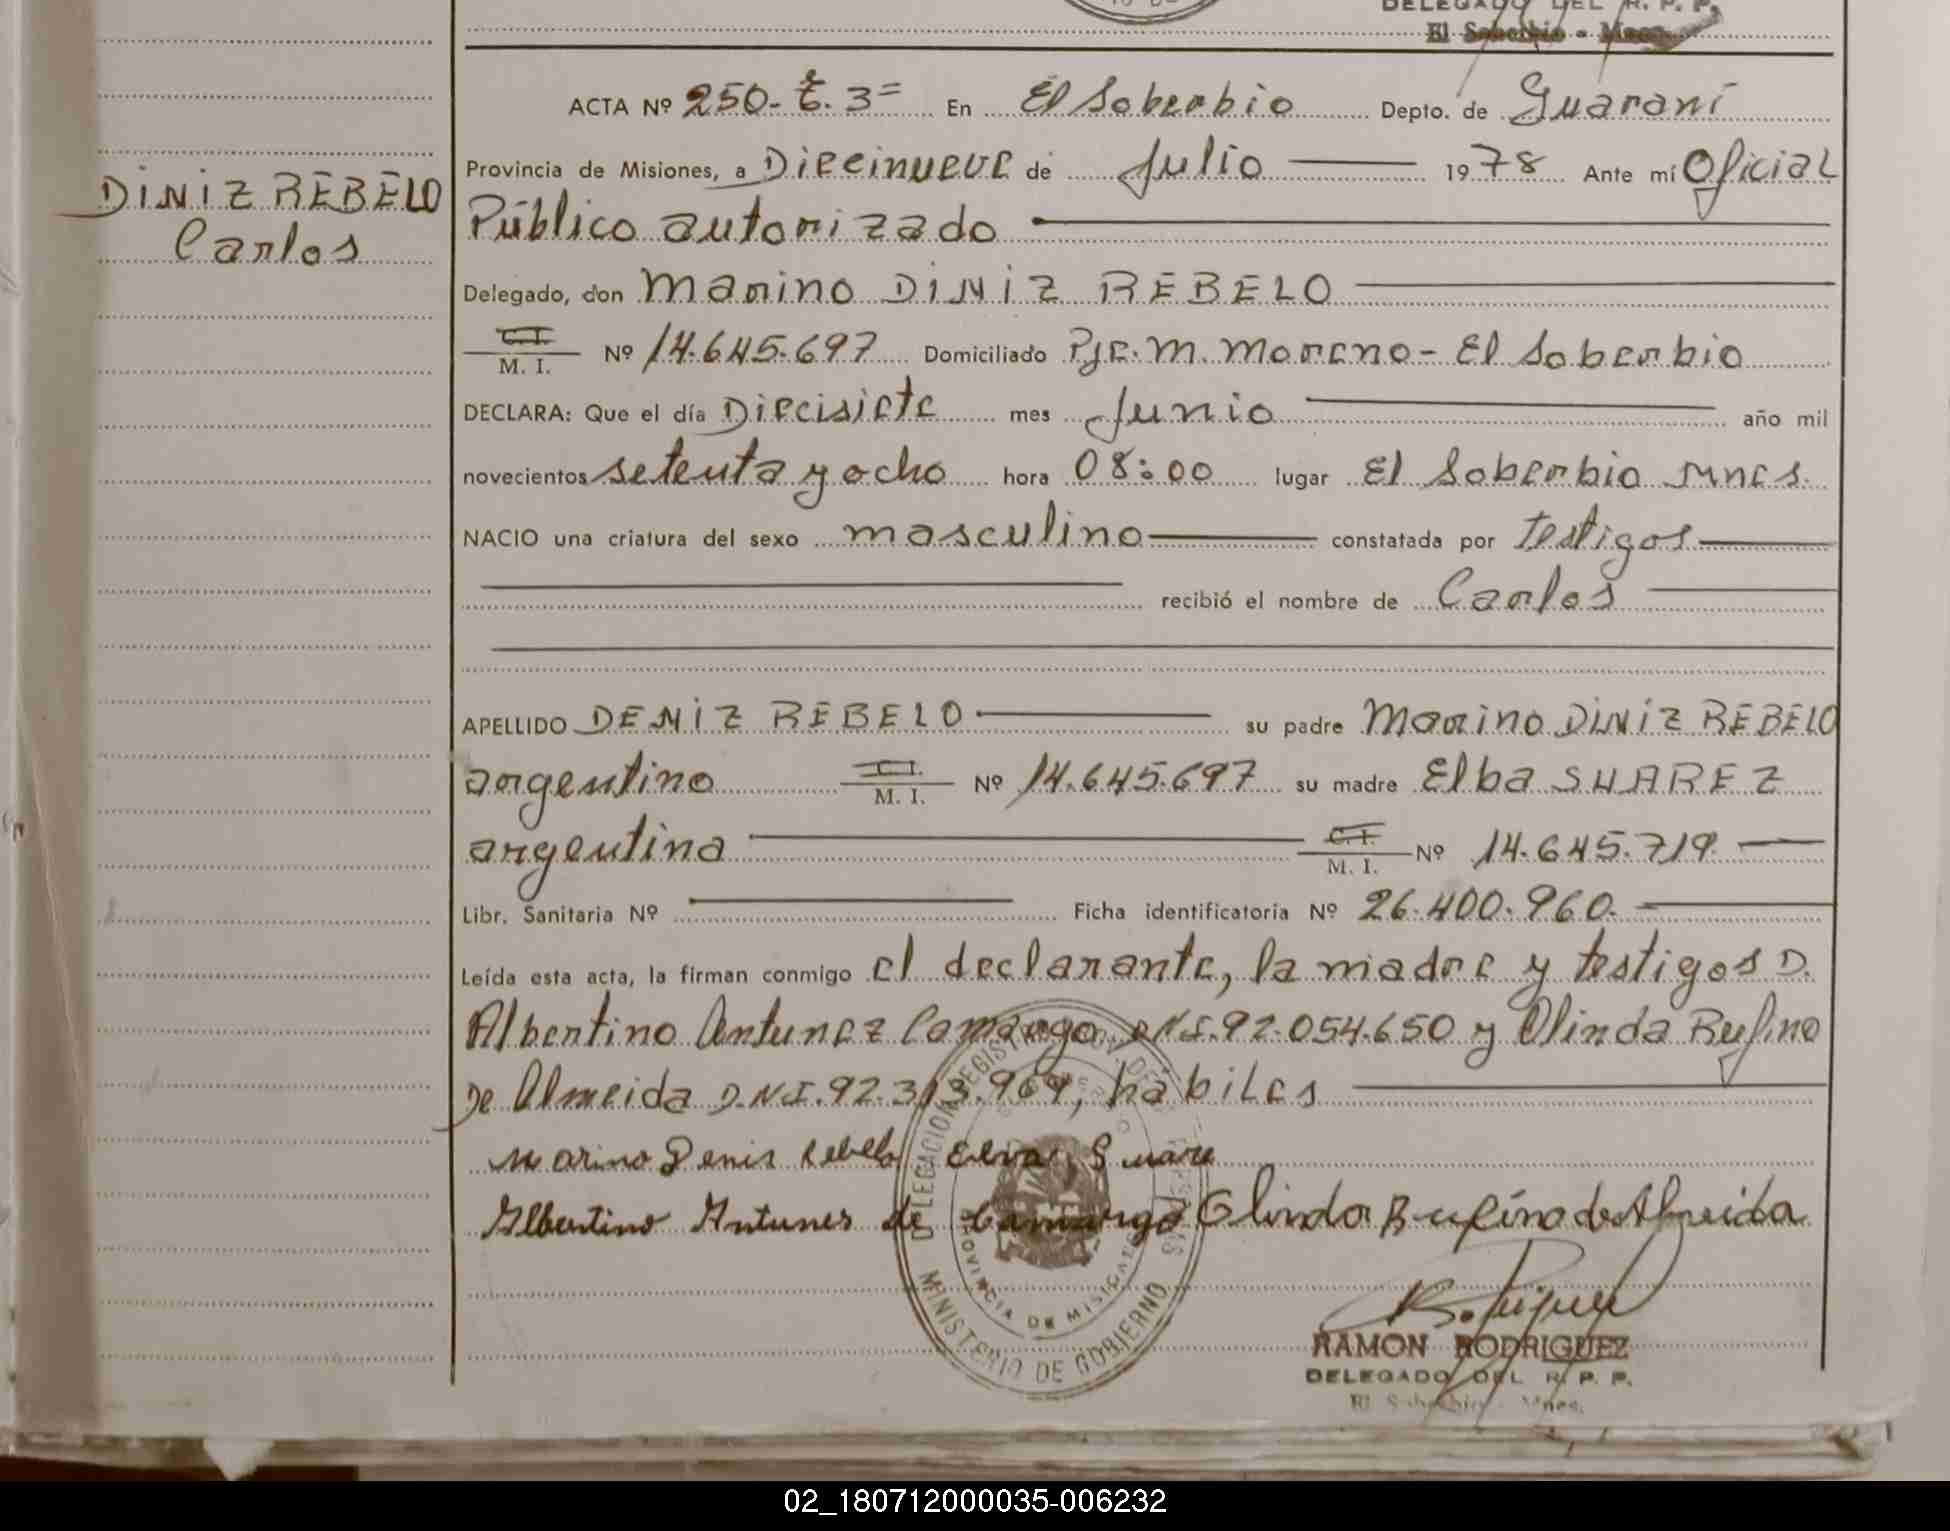 DELEGADO DEL R. P. P.
El Soberbio - Mnes.
ACTA Nº 250- t. 3= En El Soberbio Depto. de Guaraní
Provincia de Misiones, a Diecinueve de Julio 1978 Ante mí Oficial
DINIZ REBELO
Carlos
Público autorizado
Delegado, don Marino DINIZ REBELO
C.I.
M. I. Nº 14.645.697 Domiciliado Pje. M. Moreno - El Soberbio
DECLARA: Que el día Diecisiete mes Junio año mil
novecientos setenta y ocho hora 08:00 lugar El Soberbio Mnes.
NACIO una criatura del sexo masculino constatada por Testigos
recibió el nombre de Carlos
APELLIDO DENIZ REBELO su padre Marino DINIZ REBELO
argentino C.I. M. I. Nº 14.645.697 su madre Elba SUAREZ
argentina C.I. M. I. Nº 14.645.719
Libr. Sanitaria Nº Ficha identificatoria Nº 26.400.960.
Leída esta acta, la firman conmigo el declarante, la madre y testigos D.
Albertino Antunez Camargo DNI.92.054.650 y Olinda Rufino
De Almeida D.N.I.92.313.969, hábiles
Marino Denis Rebelo Elva Suare
Albertino Antunes de Camargo Olinda Rufino de Almeida
MINISTERIO DE GOBIERNO
PROVINCIA DE MISIONES
RAMON RODRIGUEZ
DELEGADO DEL R. P. P.
El Soberbio - Mnes.
02_180712000035-006232